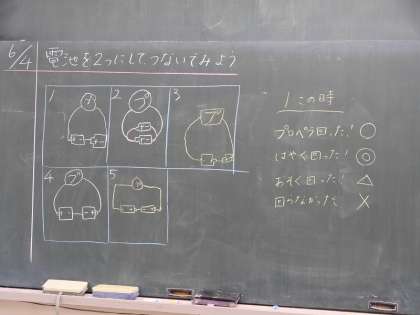 6/4 電池を2つにしてつないでみよう
1 2 3
プ プ プ
4 5
プ プ
1この時
プロペラ回った! ○
はやく回った! ◎
おそく回った! △
回らなかった ×